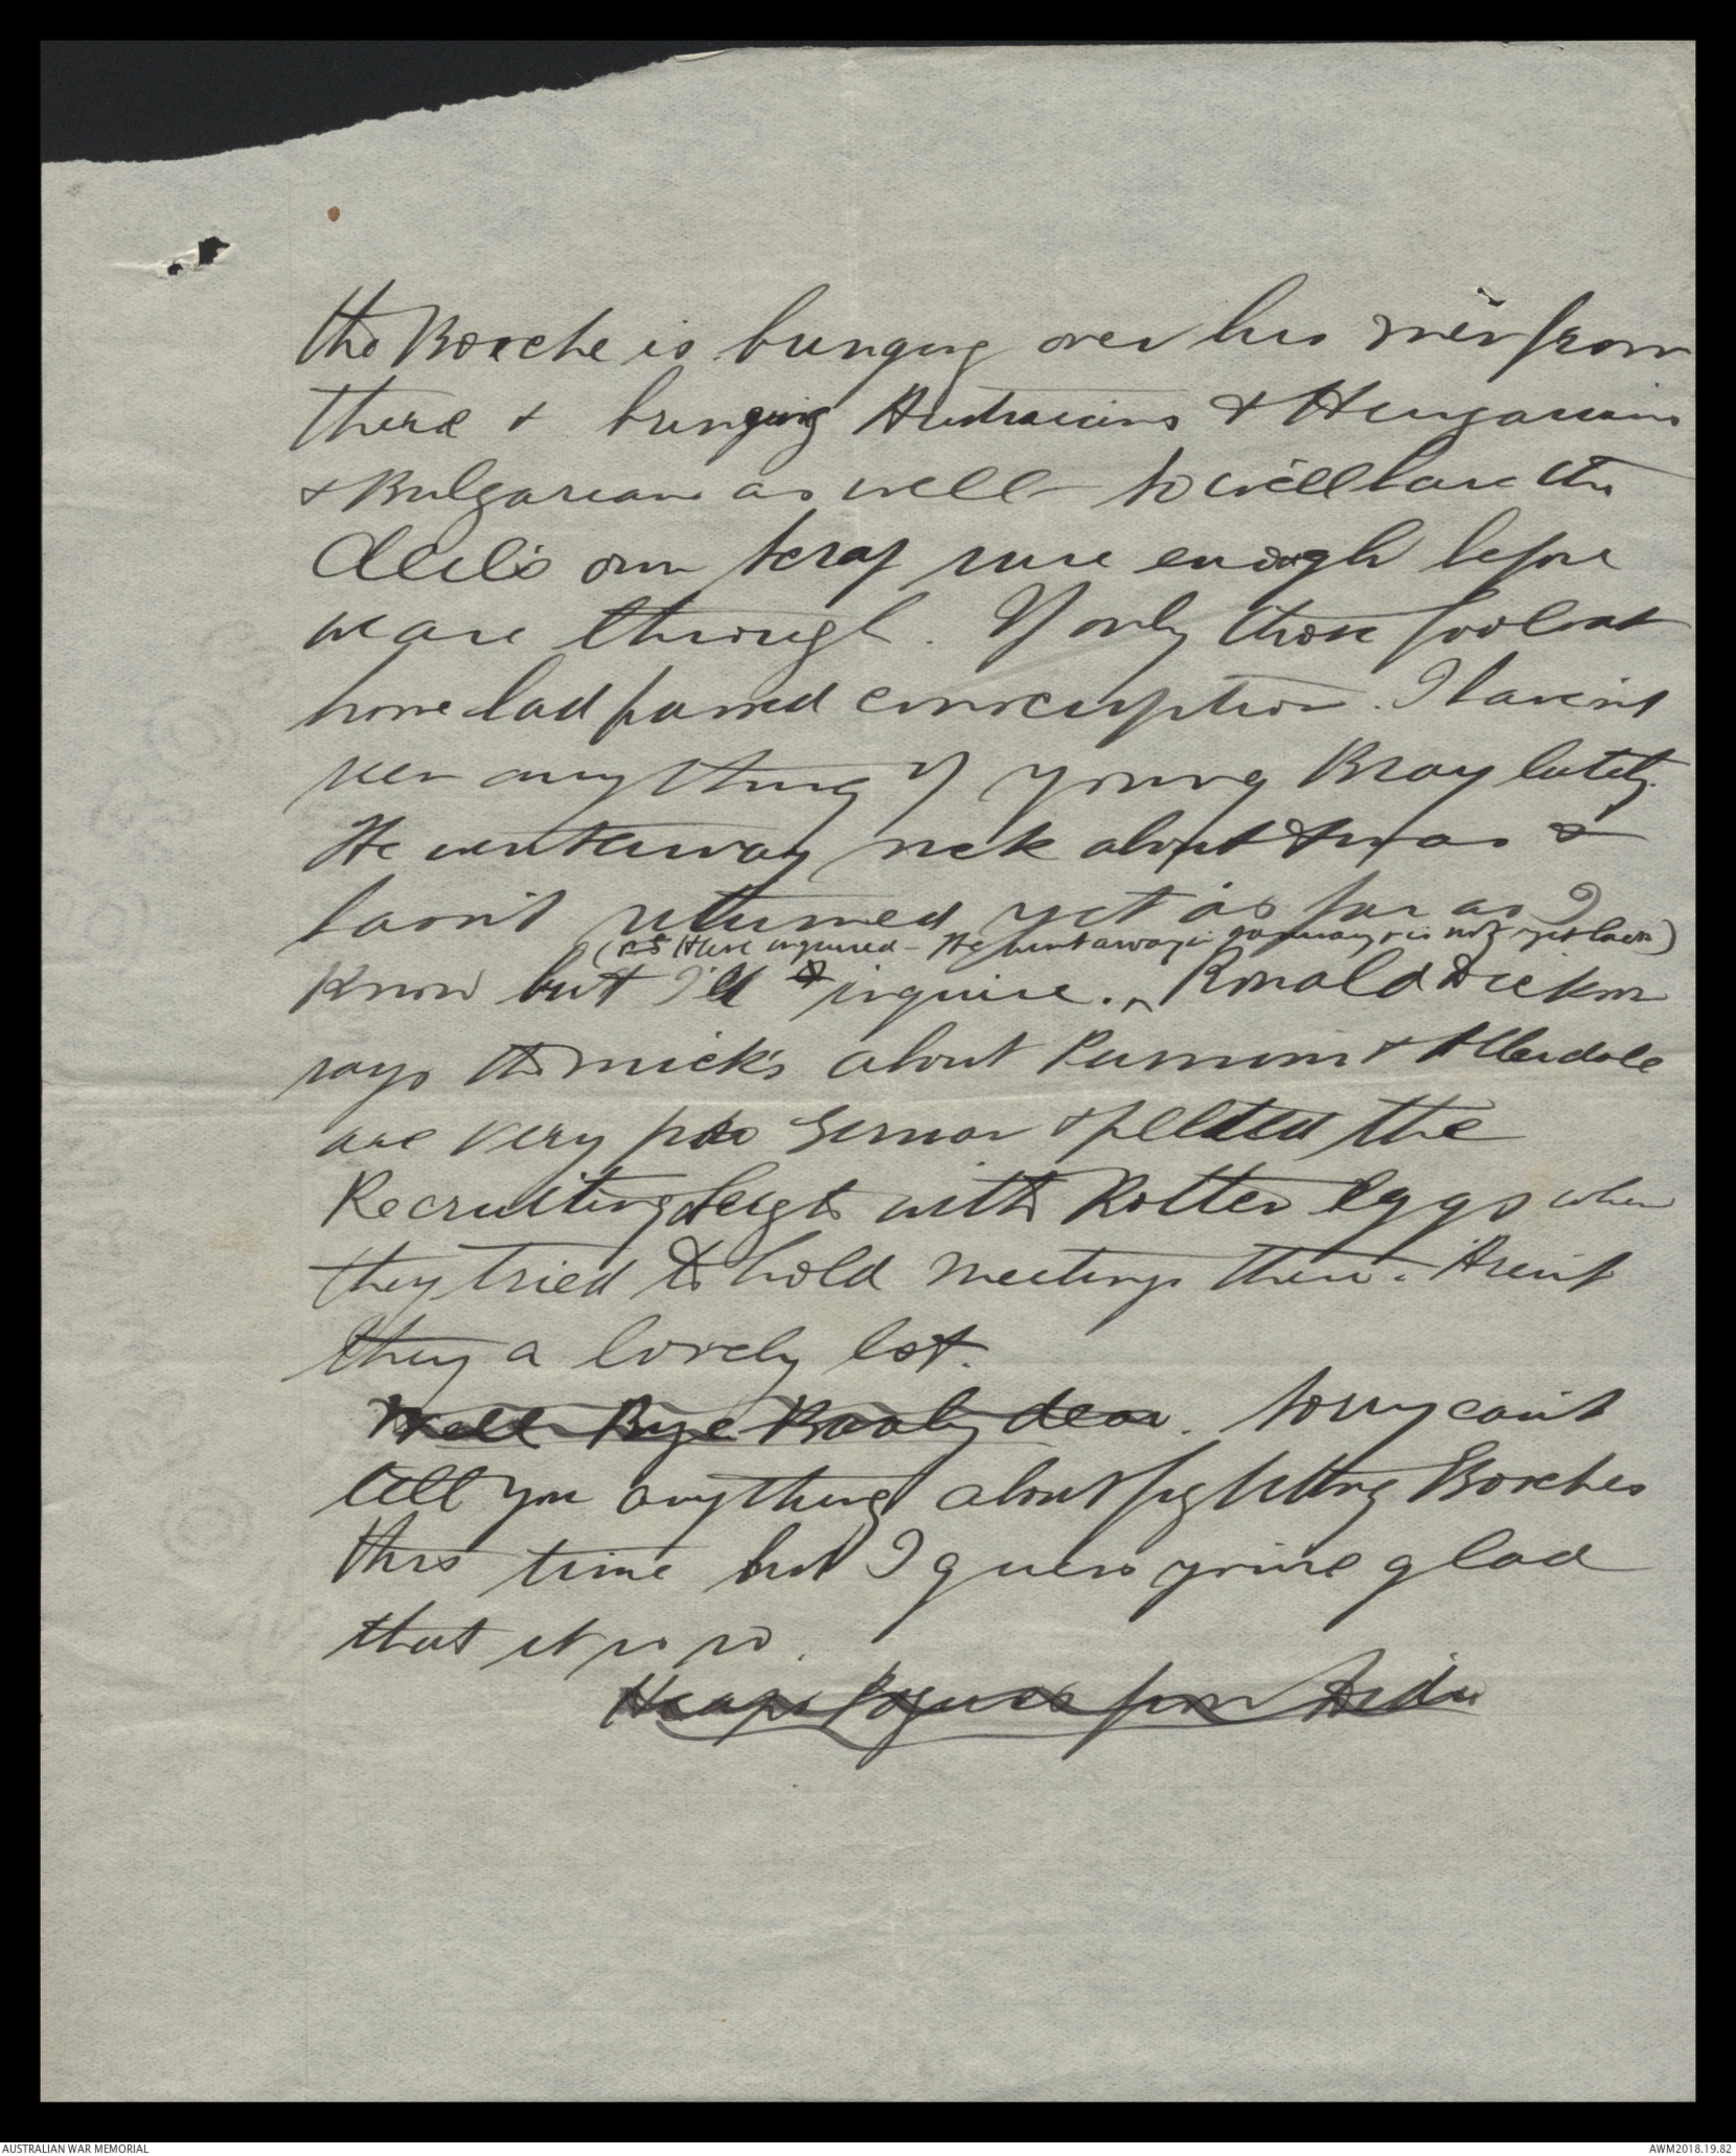 the Bosche is bringing over his men from
there & bringing Austrians & Hungarians
& Bulgarians as well so will have the
devils own scrap sure enough before
we are through. If only those fools at
home had passed conscription. I haven't
seen anything of young Bray lately.
He went away sick about Xmas &
hasn't returned yet as far as I
(PS Have inquired - He went away in January & is not yet back)
know but I'll inquire. ^ Ronald Dickson
says the mick's about Runnim & Allendale
are very pro German & pelted the
Recruiting Sergts with Rotten eggs when
they tried to hold meetings there. Arent
they a lovely lot.
Well Bye Booby dear. Sorry can't
tell you anything about fighting Bosches
this time but I guess you're glad
that it is so.
Heaps from
AUSTRALIAN WAR MEMORIAL
AWM2018.19.82